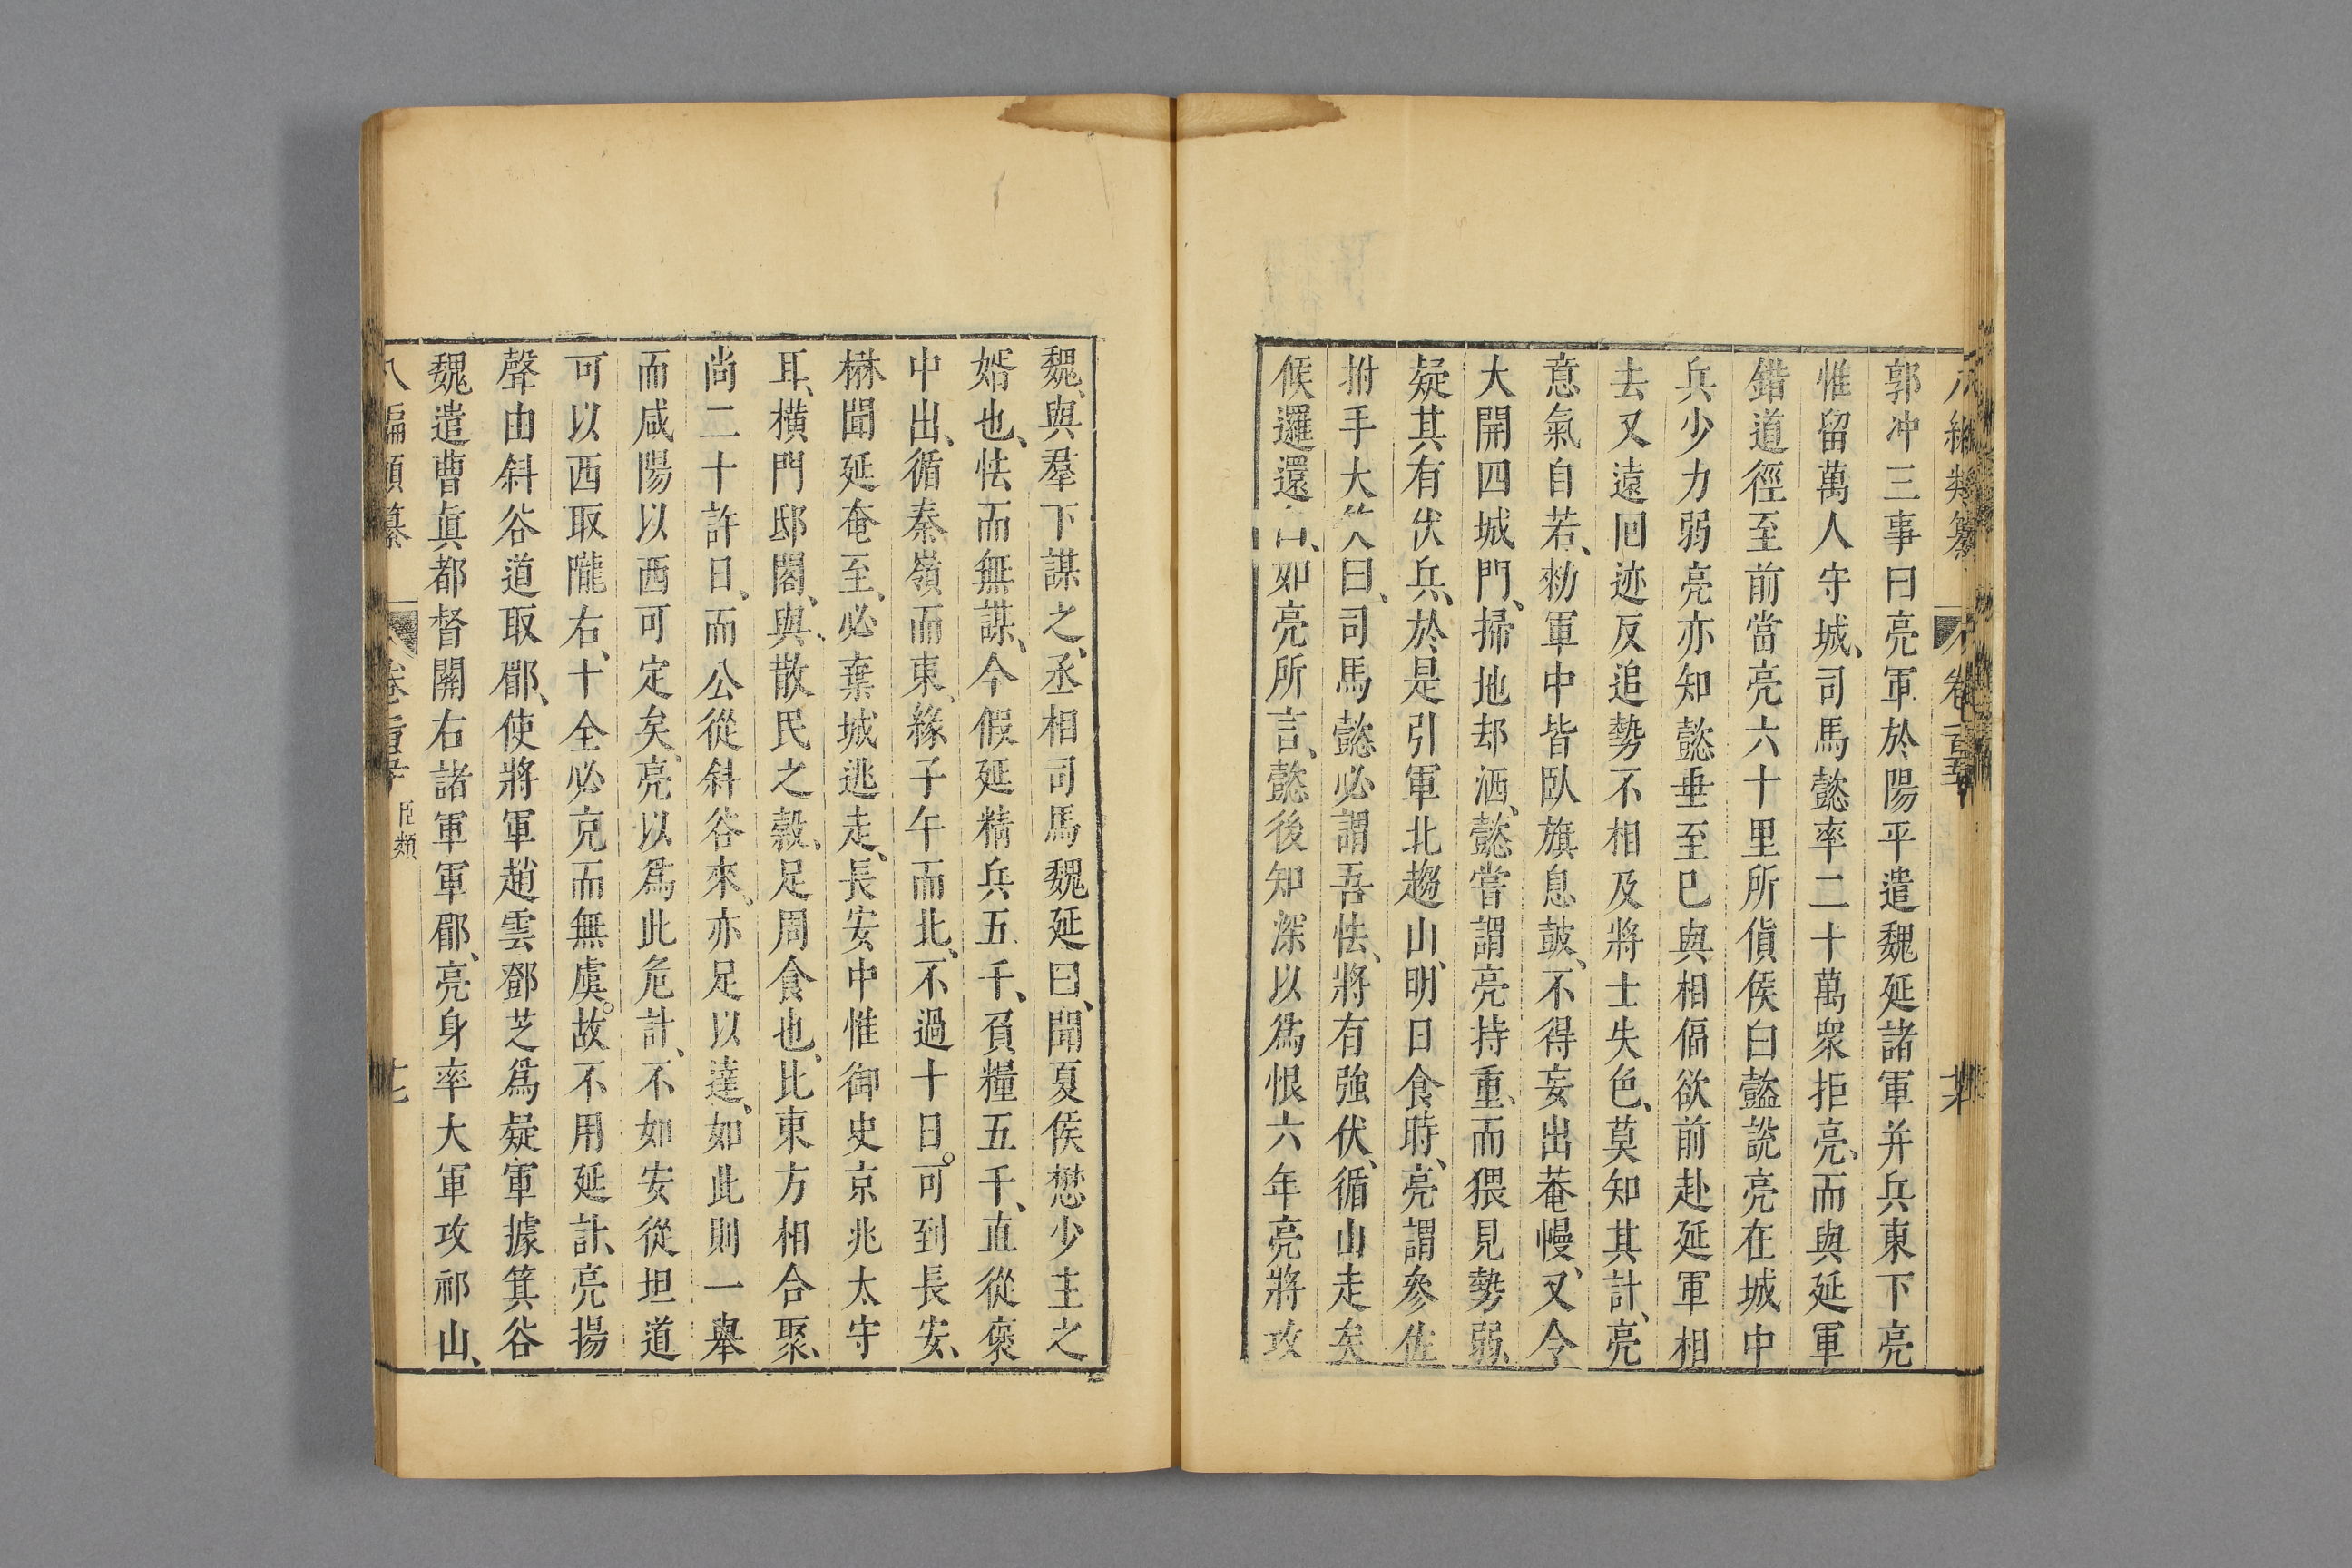 八編類纂 卷二百 共
郭冲三事曰亮軍於陽平遣魏延諸軍并兵東下亮
惟留萬人守城、司馬懿率二十萬衆拒亮、而與延軍
錯道徑至前當亮六十里所偵候白懿說亮在城中
兵少力弱亮亦知懿垂至已與相偪欲前赴延軍相
去又遠囘迹反追勢不相及將士失色、莫知其計、亮
意氣自若、勑軍中皆臥旗息鼓、不得妄出菴幔、又令
大開四城門、掃地却洒、懿嘗謂亮持重、而猥見勢弱
疑其有伏兵、於是引軍北趨山、明日食時、亮謂參佐
拊手大笑曰、司馬懿必謂吾怯、將有強伏、循山走矣
候邏還白、如亮所言、懿後知深以爲恨六年亮將攻
魏、與羣下謀之、丞相司馬魏延曰、聞夏侯楙少主之
婿也、怯而無謀、今假延精兵五千、負糧五千、直從褒
中出、循秦嶺而東、緣子午而北、不過十日。可到長安、
楙聞延奄至、必棄城逃走、長安中惟御史京兆太守
耳、橫門邸閣、與散民之穀、足周食也、比東方相合聚、
尚二十許日、而公從斜谷來、亦足以達、如此則一舉
而咸陽以西可定矣、亮以爲此危計、不如安從坦道
可以西取隴右、十全必克而無虞。故不用延計、亮揚
聲由斜谷道取郿、使將軍趙雲鄧芝爲疑軍據箕谷
魏遣曹眞都督關右諸軍軍郿、亮身率大軍攻祁山、
八編類纂 卷二百 臣類 七